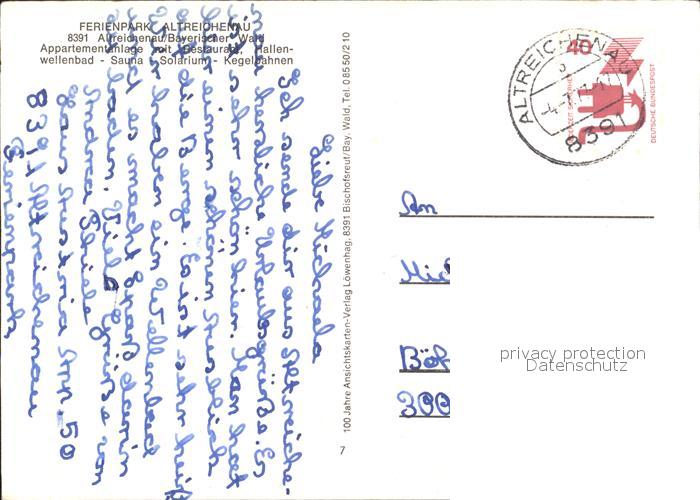 FERIENPARK ALTREICHENAU
8391 Altreichenau/Bayerischer Wald
Appartementanlage mit Restaurant, Hallen-
wellenbad - Sauna - Solarium - Kegelbahnen
Liebe Michaela
Ich sende dir aus Altreiche-
nau herzliche Urlaubsgrüße. Es
ist sehr schön hier. Man hat
hier einen schönen Ausblick
auf die Berge. Es ist sehr heiß
Wir haben ein Wellenbad
und es macht Spaß darin
zu baden. Viele Grüße von
Andrea
Haus Austria App. 50
8391 Altreichenau
Ferienpark
100 Jahre Ansichtskarten-Verlag Löwenhag, 8391 Bischofsreut/Bay. Wald, Tel. 08550/210
7
ALTREICHENAU
8391
40
DEUTSCHE BUNDESPOST
An
Mic
Böh
300
privacy protection
Datenschutz